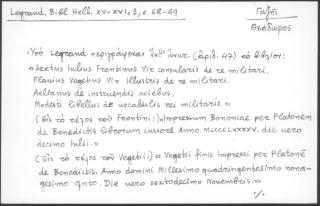 Legrand, Bibl. Hell. XV-XVI, 2, σ. 68-69
Γαζῆς
Θεόδωρος
Ὑπό Legrand περιγράφεται (ἀριθ. 47) τό βιβλίον:
«Sextus Iulius Frontinus Vir consularis de re militari.
Flavius Vegetius Vir illustris de re militari.
Aelianus de instruendis aciebus.
Modesti libellus de vocabulis rei militaris.»
(Εἰς τό τέλος τοῦ Frontini:) «Impressum Bononiae per Platonem
de Benedictis librorum cussorē Anno MCCCCLXXXXV. die vero
decimo Iulii.»
(Εἰς τό τέλος τοῦ Vegetii:) « Vegetii finis Impressi per Platonē
de Benedictis. Anno domini Millesimo quadringentesimo nona-
gesimo qnto. Die vero sextodecimo Novembris.»
·/·